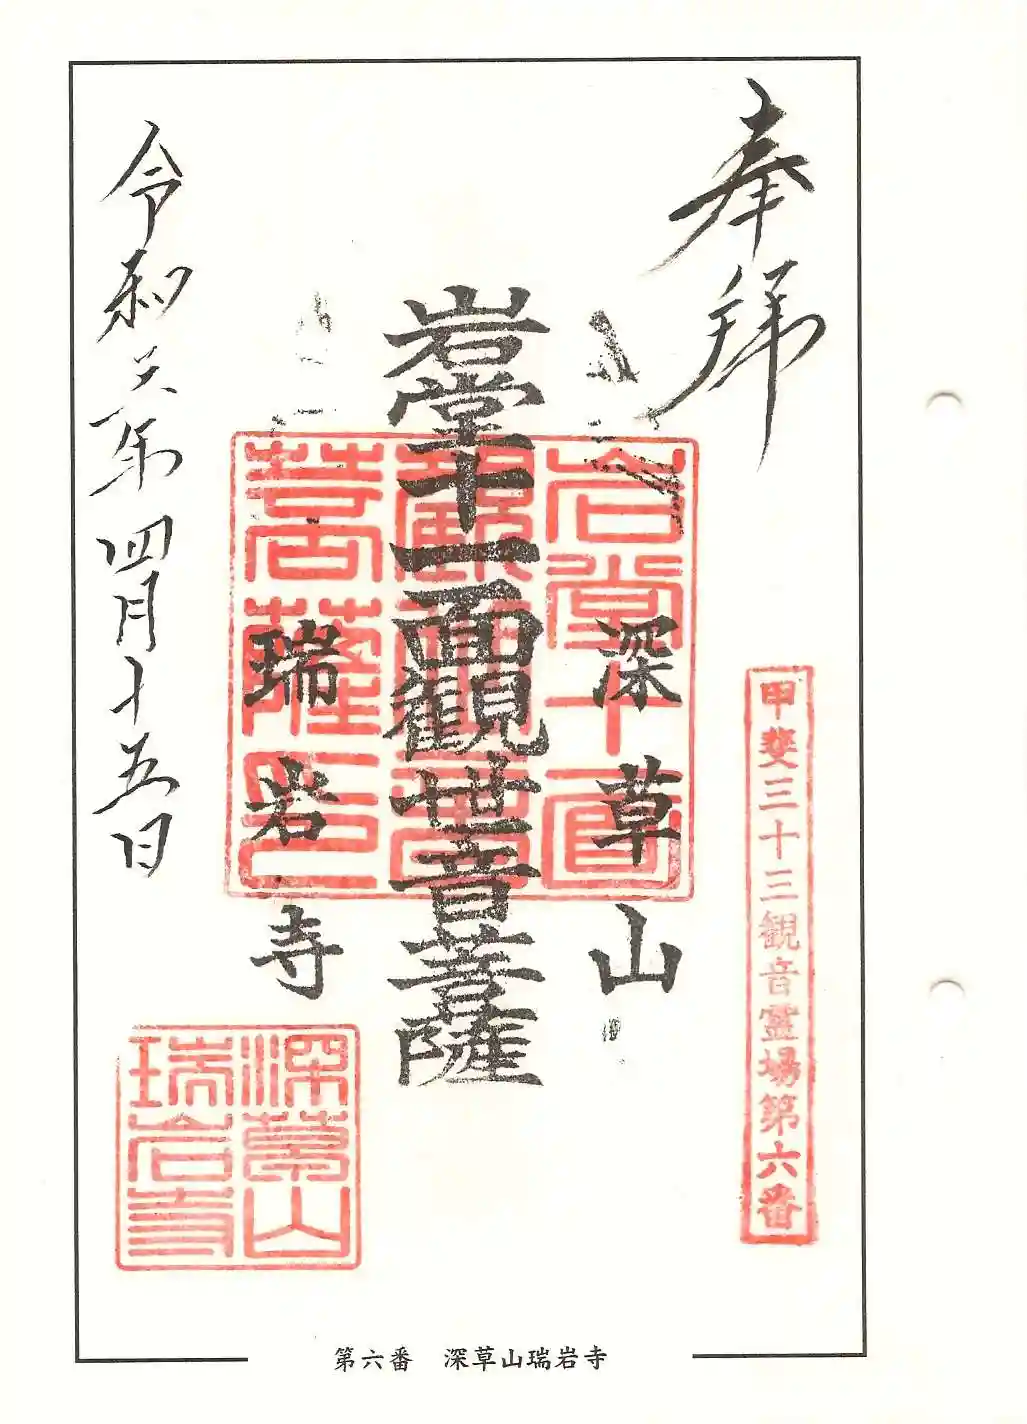 奉拝
甲斐三十三観音霊場第六番
深草山
岩堂十一面観世音菩薩
瑞岩寺
令和六年四月十五日
岩堂十一面
菩薩印
深草山
瑞岩寺
第六番　深草山瑞岩寺